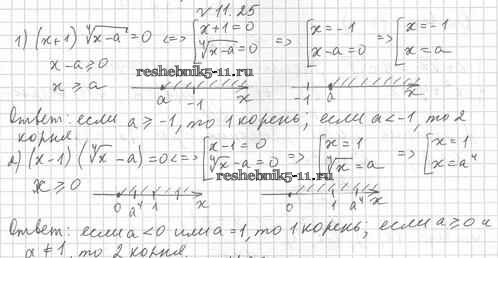 √ 11.25
1) (x+1) ∜(x-a) = 0 <=> [x+1=0 ∜(x-a)=0 => [x=-1 x-a=0 => [x=-1 x=a
x-a≥0
x≥a
reshebnik5-11.ru
a -1 x -1 a x
Ответ: если a≥-1, то 1 корень; если a<-1, то 2
корня.
2) (x-1)(∜x-a)=0<=> [x-1=0 ∜x-a=0 => [x=1 ∜x=a => [x=1 x=a⁴
reshebnik5-11.ru
x≥0
0 a⁴ 1 x 0 1 a⁴ x
Ответ: если a<0 или a=1, то 1 корень; если a≥0 и
a≠1, то 2 корня.